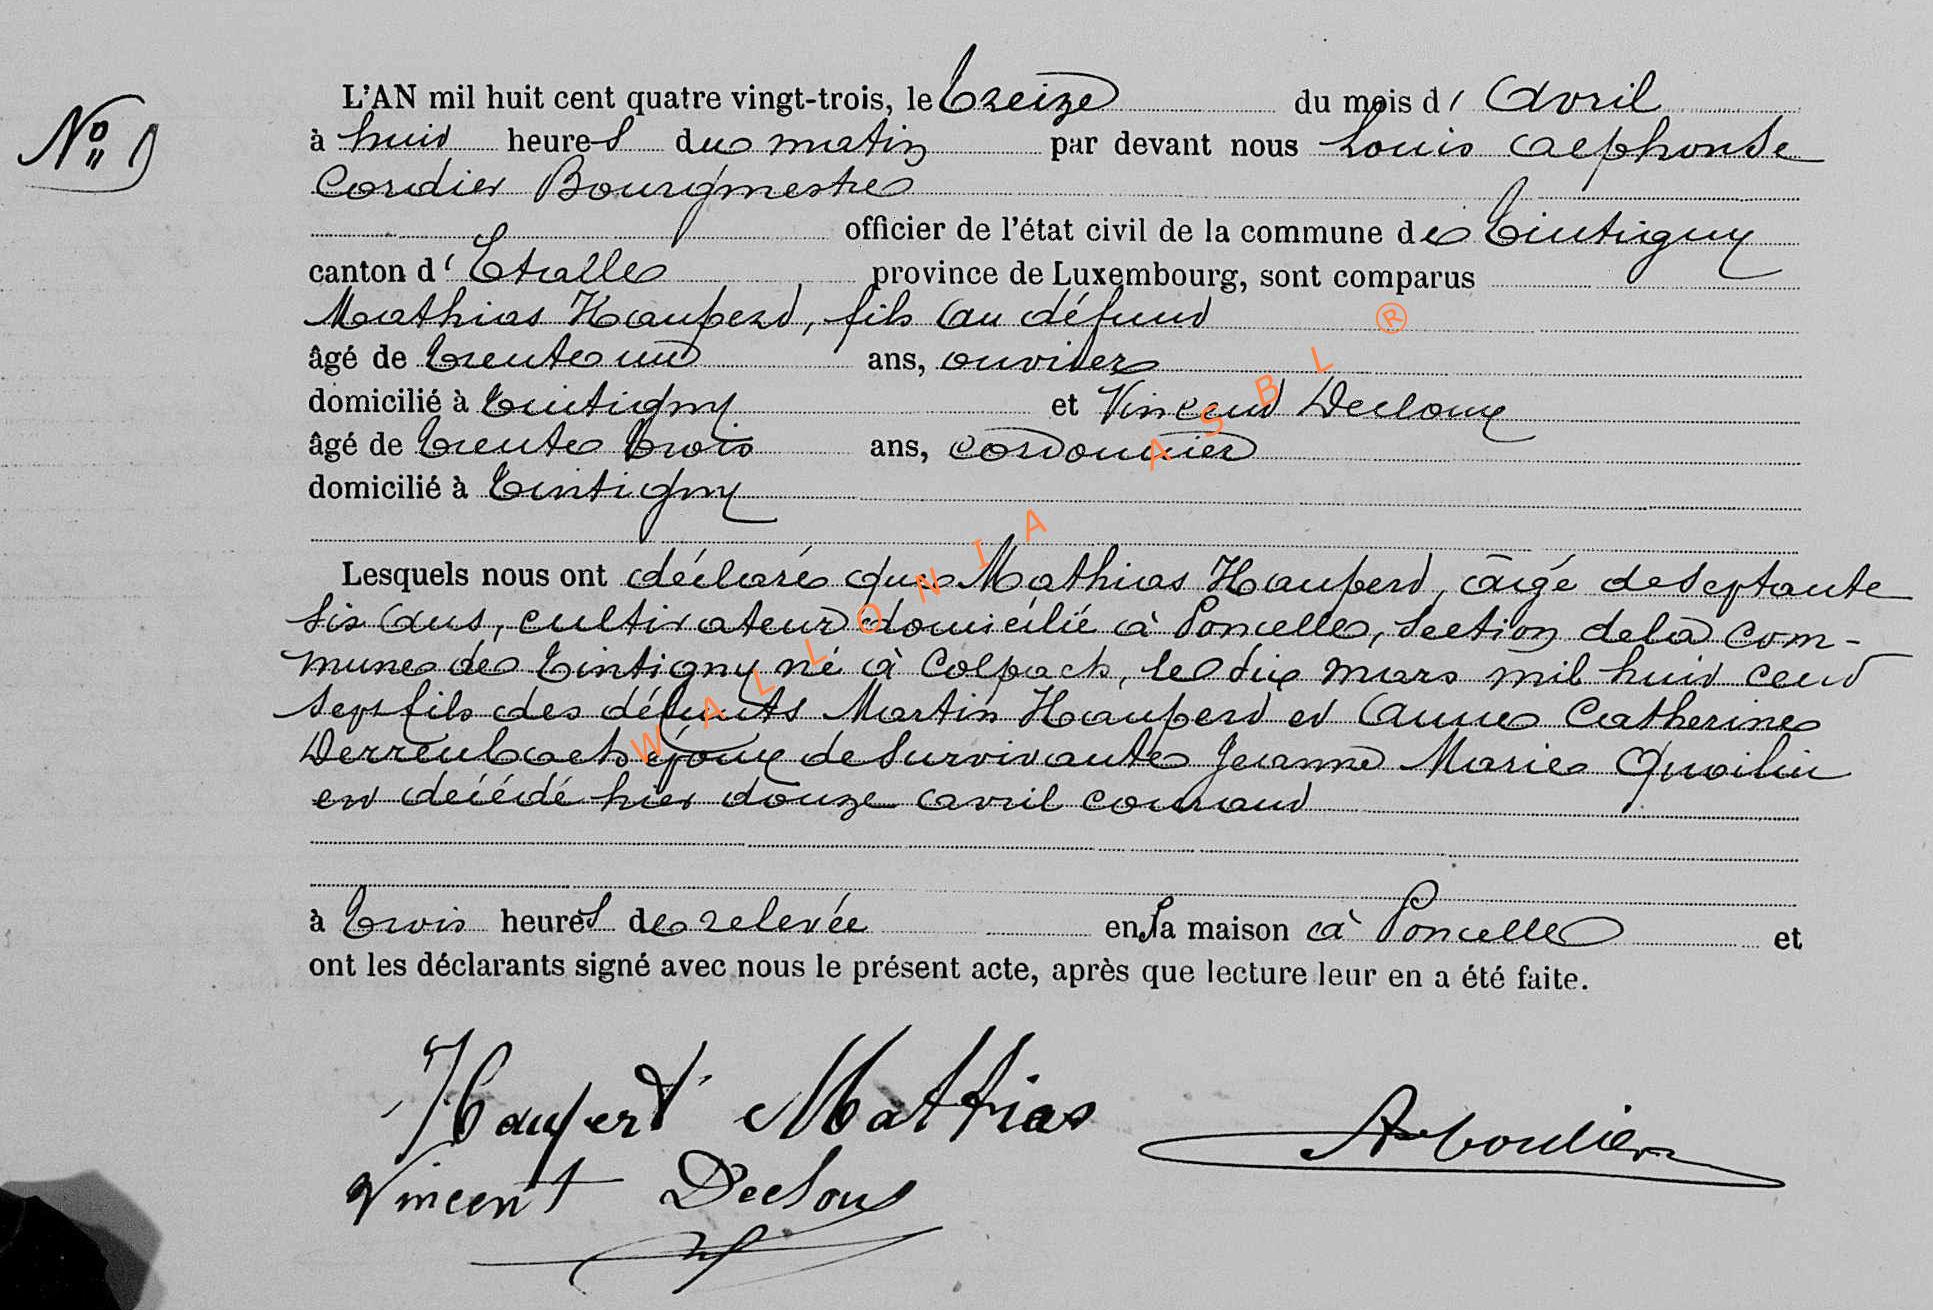 L'AN mil huit cent quatre vingt-trois, le treize du mois d'Avril
N° 9
à huit heures du matin par devant nous Louis Alphonse
Cordier Bourgmestre
officier de l'état civil de la commune de Tintigny
canton d'Etalle province de Luxembourg, sont comparus
Mathias Haupert, fils au défunt
âgé de trente un ans, ouvrier
domicilié à Tintigny et Vincent Decloux
âgé de trente trois ans, cordonnier
domicilié à Tintigny
Lesquels nous ont déclaré que Mathias Haupert, âgé de septante
six ans, cultivateur domicilié à Poncelle, section de la com-
mune de Tintigny né à Colpach, le dix mars mil huit cent
sept fils des défunts Martin Haupert et Anne Catherine
époux de survivante Jeanne Marie Quoilin
est décédé hier douze avril courant
à trois heures de relevée en sa maison à Poncelle et
ont les déclarants signé avec nous le présent acte, après que lecture leur en a été faite.
Haupert Mathias
Vincent Decloux
WALLONIA ASBL ®